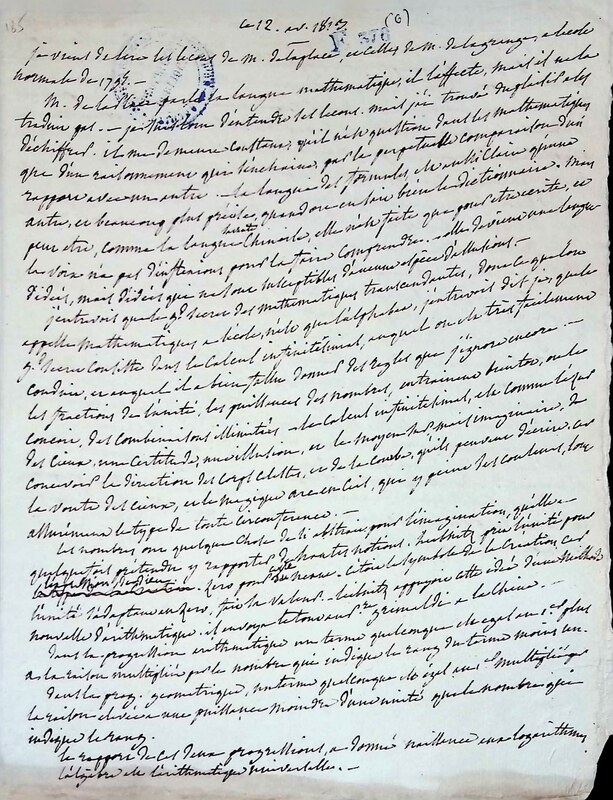 le 12. av. 1813 (6)
F 376
je viens de lire les leçons de M. de Laplace, et celles de M. de Lagrange, a l'école
normale de 1795. —
M. de la Place parle la langue mathématique, il l'affecte, mais il ne la
traduit pas. — je suis loin d'entendre ses leçons, mais j'ai trouvé du plaisir a les
déchiffrer. il me demeure constant, qu'il n'est question dans les mathématiques
que d'un raisonnement que s'enchaine, par la perpetuelle comparaison d'un
rapport avec un autre — la langue des formules, est aussi claire qu'une
autre, et beaucoup plus précise, quand on en sait bien le dictionnaire. mais
peut etre, comme la langue Chinoise, elle n'est faite que pour etre ecrite, et
la voix n'a pas d'inflexions pour la faire comprendre. — elle devient une langue
d'idées, mais d'idées qui ne sont susceptibles d'aucune espèce d'illusions. —
j'entrevois que le gd secret des mathématiques transcendantes, dont ce que l'on
appelle mathématiques a l'école, n'est que l'alphabet, j'entrevois dis je, que le
gd secret consiste dans le calcul infinitésimal, auquel on est très facilement
conduit, et auquel il a bien fallu donner des regles que j'ignore encore. —
les fractions de l'unité, les puissances des nombres, entrainent bientôt, ou l'on
concoit, des combinaisons illimitées — le calcul infinitésimal, est comme l'
des cieux, une certitude, une illusion, et le moyen mais imaginaire, de
concevoir la direction des corps celestes, et de la courbe, qu'ils peuvent décrire. car
la voute des cieux, et le magique arc en ciel, que y peint ses couleurs, sont
assurément le type de toute circonférence. —
Les nombres ont quelque chose de si abstrait pour l'imagination, qu'elle a
quelquefois prétendu y rapporter de hautes notions. Leibnitz prit l'unité pour
Dieu, zero pour le neant. c'etoit le symbole de la Creation car
l'unité s'adaptant au zero, fait sa valeur. — Leibnitz appuyoit cette idée d'une méthode
nouvelle d'arithmétique. il envoya le tout au Pere Grimaldi a la Chine.
Dans la progression arithmétique un terme quelconque est egal au 1er plus
a la raison multipliée par le nombre qui indique le rang du terme moins un.
Dans la prog. geometrique, un terme quelconque est egal au 1er multiplié par
la raison elevée a une puissance moindre d'une unité que le nombre qui
indique le rang.
Le rapport de ces deux progressions, a donné naissance aux logarithmes
L'algèbre est l'arithmétique universelle. —